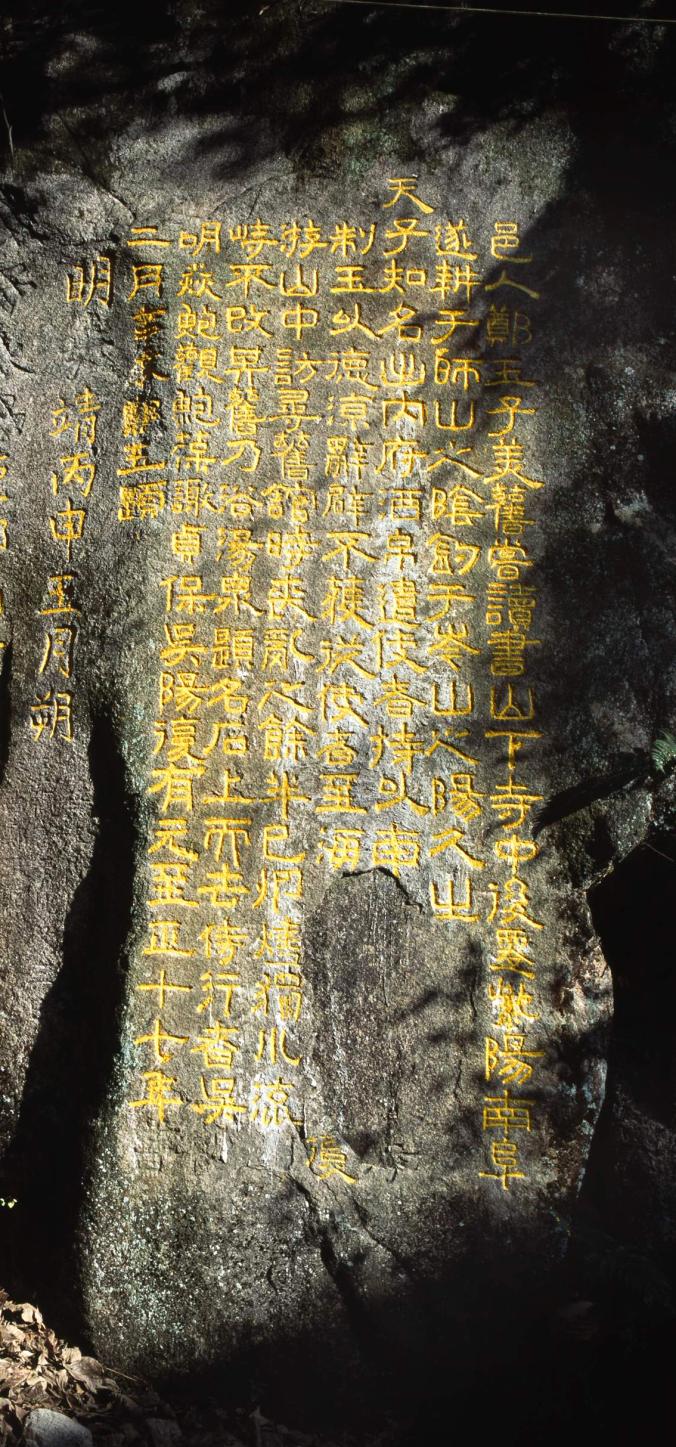 邑人鄭玉子美舊嘗讀書山下寺中後愛紫陽南阜
遂耕于師山之陰釣于岑山之陽久之
天子知名出內府酒帛遣使者持以南
制玉以德涼辭辟不獲從使者至海復
游山中訪尋舊館時喪亂之餘半已煨燼獨水流
峙不改其舊乃浴湯泉題名石上而去侍行者吳
明焱鮑觀鮑葆諏貞保吳陽復有元至正十七年
二月鄭玉題
明靖丙申王月朔